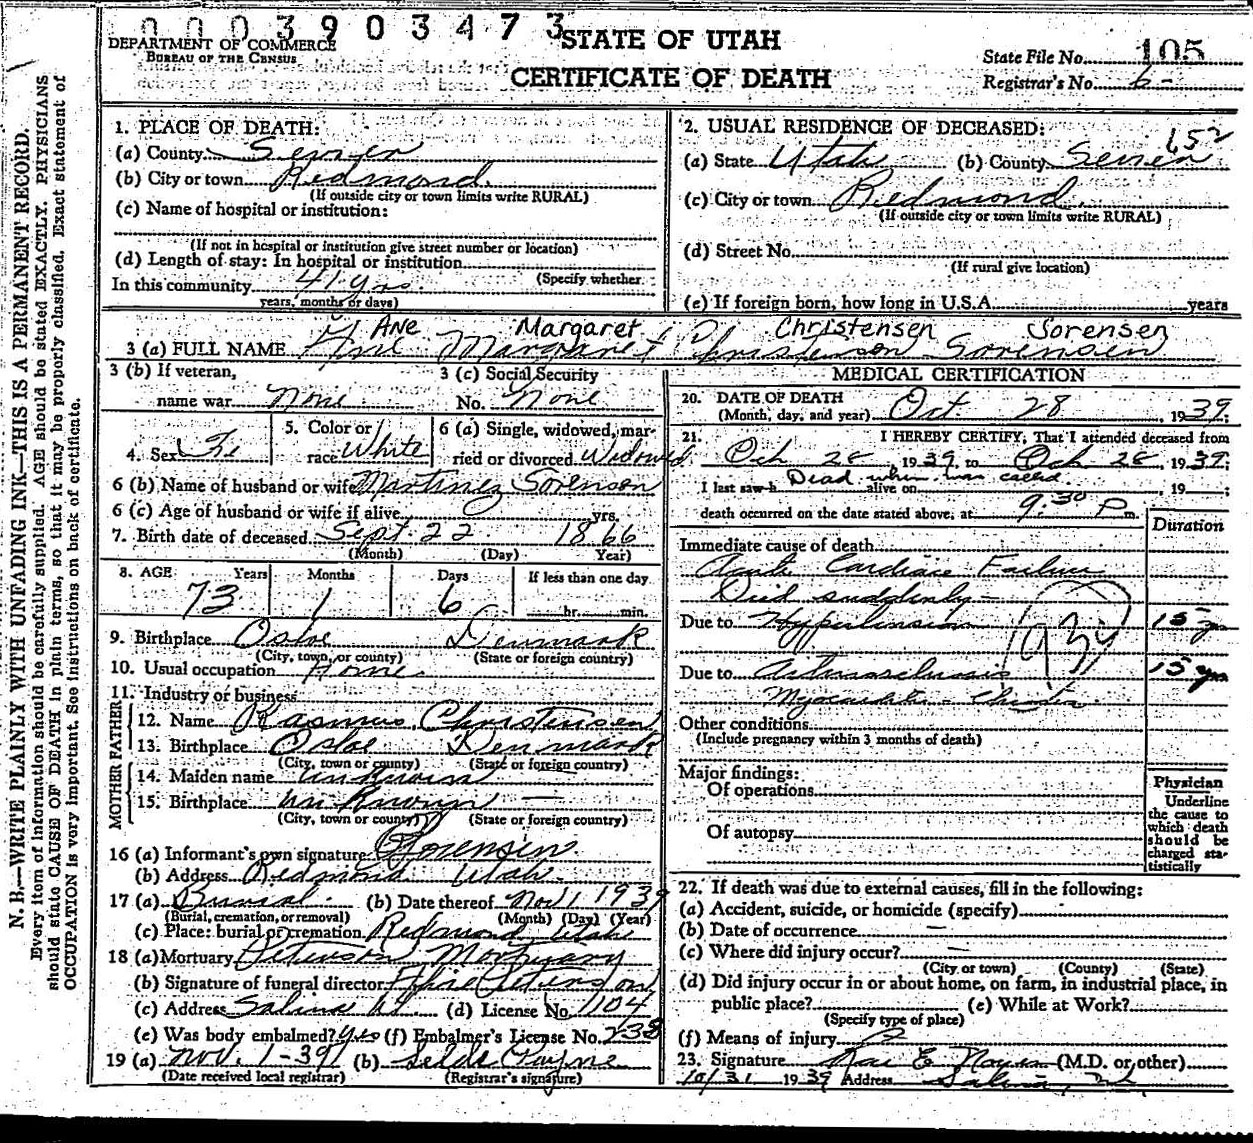 0003903473
DEPARTMENT OF COMMERCE
BUREAU OF THE CENSUS
STATE OF UTAH
CERTIFICATE OF DEATH
State File No. 105
Registrar's No. 6-
N. B.—WRITE PLAINLY WITH UNFADING INK—THIS IS A PERMANENT RECORD.
Every item of information should be carefully supplied. AGE should be stated EXACTLY. PHYSICIANS
should state CAUSE OF DEATH in plain terms, so that it may be properly classified. Exact statement of
OCCUPATION is very important. See instructions on back of certificate.
1. PLACE OF DEATH:
(a) County Sevier
(b) City or town Redmond
(If outside city or town limits write RURAL)
(c) Name of hospital or institution:
(If not in hospital or institution give street number or location)
(d) Length of stay: In hospital or institution
(Specify whether
In this community 41 yrs.
years, months or days)
2. USUAL RESIDENCE OF DECEASED:
652
(a) State Utah (b) County Sevier
(c) City or town Redmond
(If outside city or town limits write RURAL)
(d) Street No.
(If rural give location)
(e) If foreign born, how long in U.S.A. years
Ane Margaret Christensen Sorensen
3 (a) FULL NAME Ane Margaret Christenson Sorensen
3 (b) If veteran,
name war None
3 (c) Social Security
No. None
4. Sex Fe
5. Color or
race White
6 (a) Single, widowed, mar-
ried or divorced Widowed
6 (b) Name of husband or wife Martinez Sorenson
6 (c) Age of husband or wife if alive yrs.
7. Birth date of deceased Sept. 22 1866
(Month) (Day) Year)
8. AGE Years Months Days If less than one day
73 1 6 hr. min.
9. Birthplace Osloe Denmark
(City, town, or county) (State or foreign country)
10. Usual occupation Home
11. Industry or business
FATHER
12. Name Rasmus Christensen
13. Birthplace Osloe Denmark
(City, town or county) (State or foreign country)
MOTHER
14. Maiden name Unknown
15. Birthplace Unknown —
(City, town or county) (State or foreign country)
16 (a) Informant's own signature Sorensen
(b) Address Redmond Utah
17 (a) Burial (b) Date thereof Nov 1 1939
(Burial, cremation, or removal) (Month) (Day) (Year)
(c) Place: burial or cremation Redmond Utah
18 (a) Mortuary Peterson Mortuary
(b) Signature of funeral director Peterson
(c) Address Salina Ut. (d) License No. 1104
(e) Was body embalmed? Yes (f) Embalmer's License No. 238
19 (a) Nov. 1-39 (b) Selde Payne
(Date received local registrar) (Registrar's signature)
MEDICAL CERTIFICATION
20. DATE OF DEATH
(Month, day, and year) Oct. 28, 1939.
21. I HEREBY CERTIFY, That I attended deceased from
Oct 28 1939, to Oct 28, 1939;
I last saw h Dead when was called. alive on , 19 ;
death occurred on the date stated above, at 9:30 P m.
Duration
Immediate cause of death
Acute Cardiac Failure
Died suddenly-
Due to Hypertension 15 yr
Due to Arteriosclerosis 15 yr
Myocarditis - Chronic
Other conditions
(Include pregnancy within 3 months of death)
Major findings:
Of operations
Of autopsy
Physician
Underline
the cause to
which death
should be
charged sta-
tistically
22. If death was due to external causes, fill in the following:
(a) Accident, suicide, or homicide (specify)
(b) Date of occurrence —
(c) Where did injury occur? —
(City or town) (County) (State)
(d) Did injury occur in or about home, on farm, in industrial place, in
public place? (e) While at Work?
(Specify type of place)
(f) Means of injury
23. Signature Rae E Noyes (M.D. or other)
10/31 1939 Address Salina, Ut